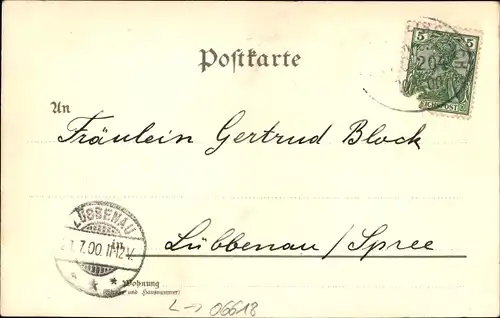 Postkarte
5 5
REICHSPOST
An
Fräulein Gertrud Block
Lübbenau/Spree
LÜBBENAU
7.00. 11-12V.
Wohnung
(Straße und Hausnummer)
L→ 06618